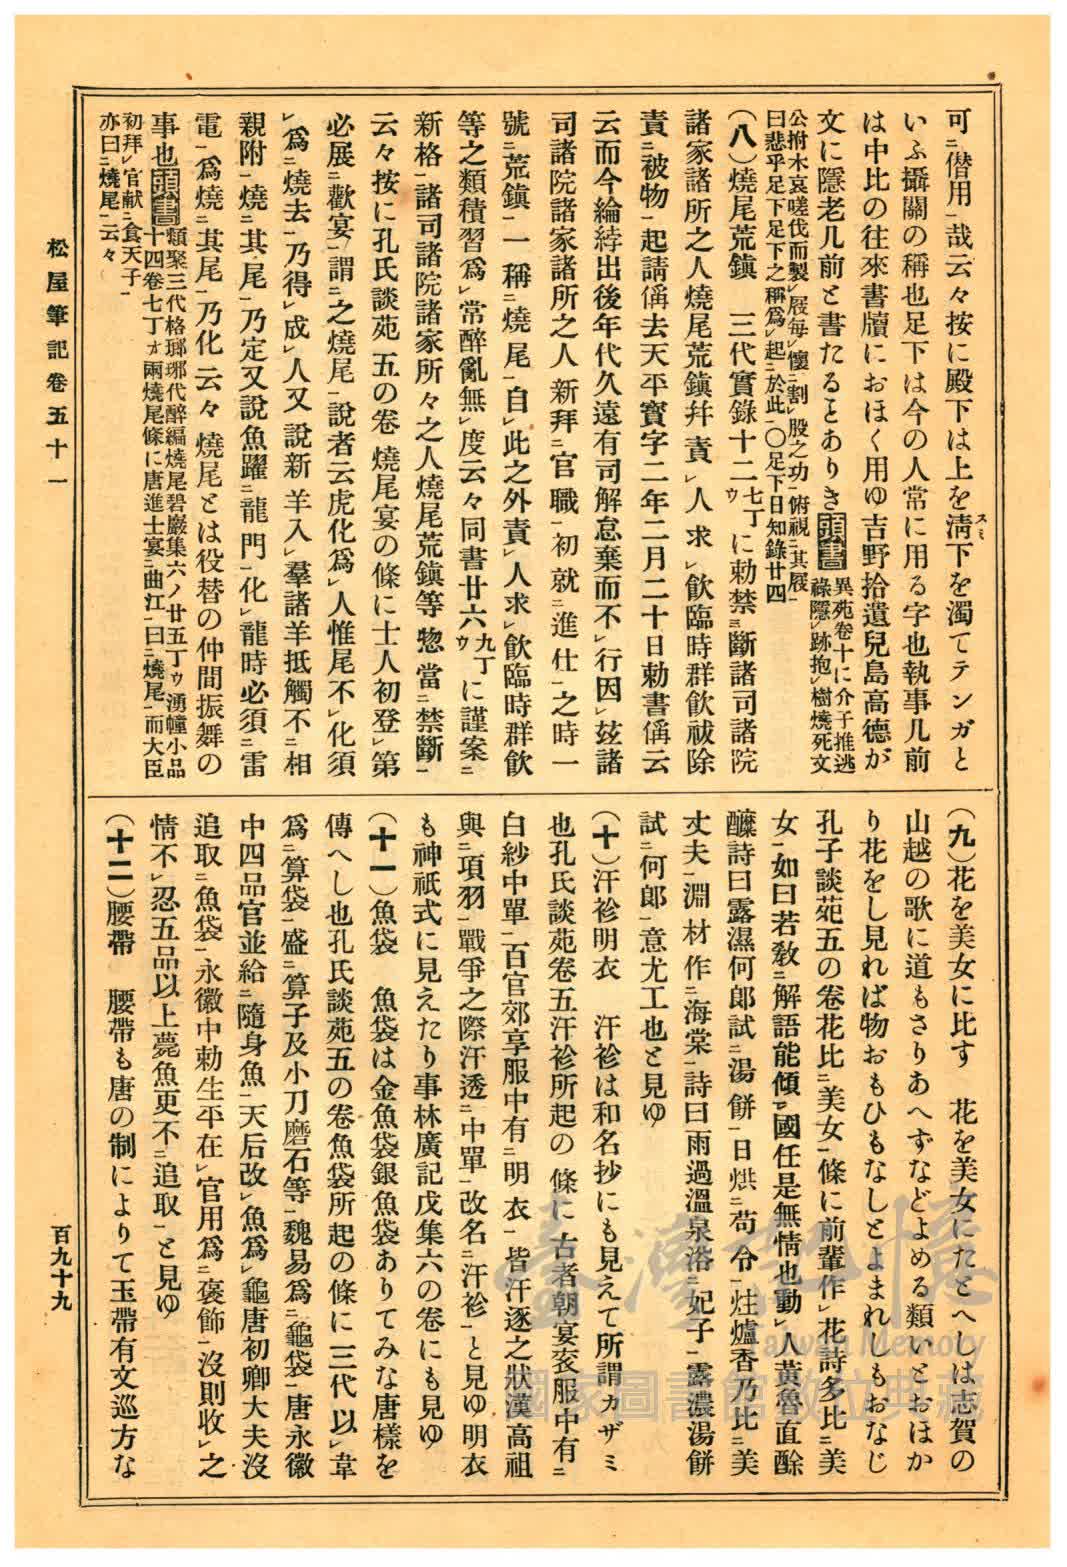 可ニ僭用一哉云々按に殿下は上を淸スミ下を濁てテンガと
いふ攝關の稱也足下は今の人常に用る字也執事几前
は中比の往來書牘におほく用ゆ吉野拾遺兒島高德が
文に隱老几前と書たることありき頭書異苑卷十に介子推逃
祿隱レ跡抱レ樹燒死文
公拊木哀嗟伐而製レ屐每レ懷ニ割レ股之功一俯視ニ其屐一
曰悲乎足下足下之稱爲レ起ニ於此一〇足下日知錄廿四
(八)燒尾荒鎭　三代實錄十二七丁ウに勅禁ニ斷諸司諸院
諸家諸所之人燒尾荒鎭幷責レ人求レ飮臨時群飮祓除
責ニ被物一起請偁去天平寶字二年二月二十日勅書偁云
云而今綸綍出後年代久遠有司解怠棄而不レ行因レ玆諸
司諸院諸家諸所之人新拜ニ官職一初就ニ進仕一之時一
號ニ荒鎭一一稱ニ燒尾一自レ此之外責レ人求レ飮臨時群飮
等之類積習爲レ常醉亂無レ度云々同書廿六九丁ウに謹案ニ
新格一諸司諸院諸家所々之人燒尾荒鎭等惣當ニ禁斷一
云々按に孔氏談苑五の卷燒尾宴の條に士人初登レ第
必展ニ歡宴一謂ニ之燒尾一說者云虎化爲レ人惟尾不レ化須
レ爲ニ燒去一乃得レ成レ人又說新羊入レ羣諸羊抵觸不ニ相
親附一燒ニ其尾一乃定又說魚躍ニ龍門一化レ龍時必須ニ雷
電一爲燒ニ其尾一乃化云々燒尾とは役替の仲間振舞の
事也頭書類聚三代格瑯琊代醉編燒尾碧巖集六ノ廿五丁ウ湧幢小品
十四卷七丁オ兩燒尾條に唐進士宴ニ曲江一曰ニ燒尾一而大臣
初拜レ官獻ニ食天子一
亦曰ニ燒尾一云々
(九)花を美女に比す　花を美女にたとへしは志賀の
山越の歌に道もさりあへずなどよめる類いとおほか
り花をし見れば物おもひもなしとよまれしもおなじ
孔子談苑五の卷花比ニ美女一條に前輩作レ花詩多比ニ美
女一如曰若敎ニ解語能傾レ國任是無情也動レ人黃魯直酴
醾詩曰露濕何郞試ニ湯餠一日烘ニ荀令一炷爐香乃比ニ美
丈夫一淵材作ニ海棠一詩曰雨過溫泉浴ニ妃子一露濃湯餠
試ニ何郞一意尤工也と見ゆ
(十)汗袗明衣　汗袗は和名抄にも見えて所謂カザミ
也孔氏談苑卷五汗袗所起の條に古者朝宴袞服中有ニ
白紗中單一百官郊享服中有ニ明衣一皆汗逐之狀漢高祖
與ニ項羽一戰爭之際汗透ニ中單一改名ニ汗袗一と見ゆ明衣
も神祇式に見えたり事林廣記戊集六の卷にも見ゆ
(十一)魚袋　魚袋は金魚袋銀魚袋ありてみな唐樣を
傳へし也孔氏談苑五の卷魚袋所起の條に三代以レ韋
爲ニ算袋一盛ニ算子及小刀磨石等一魏易爲ニ龜袋一唐永徽
中四品官並給ニ隨身魚一天后改レ魚爲レ龜唐初卿大夫沒
追取ニ魚袋一永徽中勅生平在レ官用爲ニ褒飾一沒則收レ之
情不レ忍五品以上薨魚更不ニ追取一と見ゆ
(十二)腰帶　腰帶も唐の制によりて玉帶有文巡方な
松屋筆記卷五十一
百九十九
臺灣記憶
Taiwan Memory
國家圖書館數位典藏